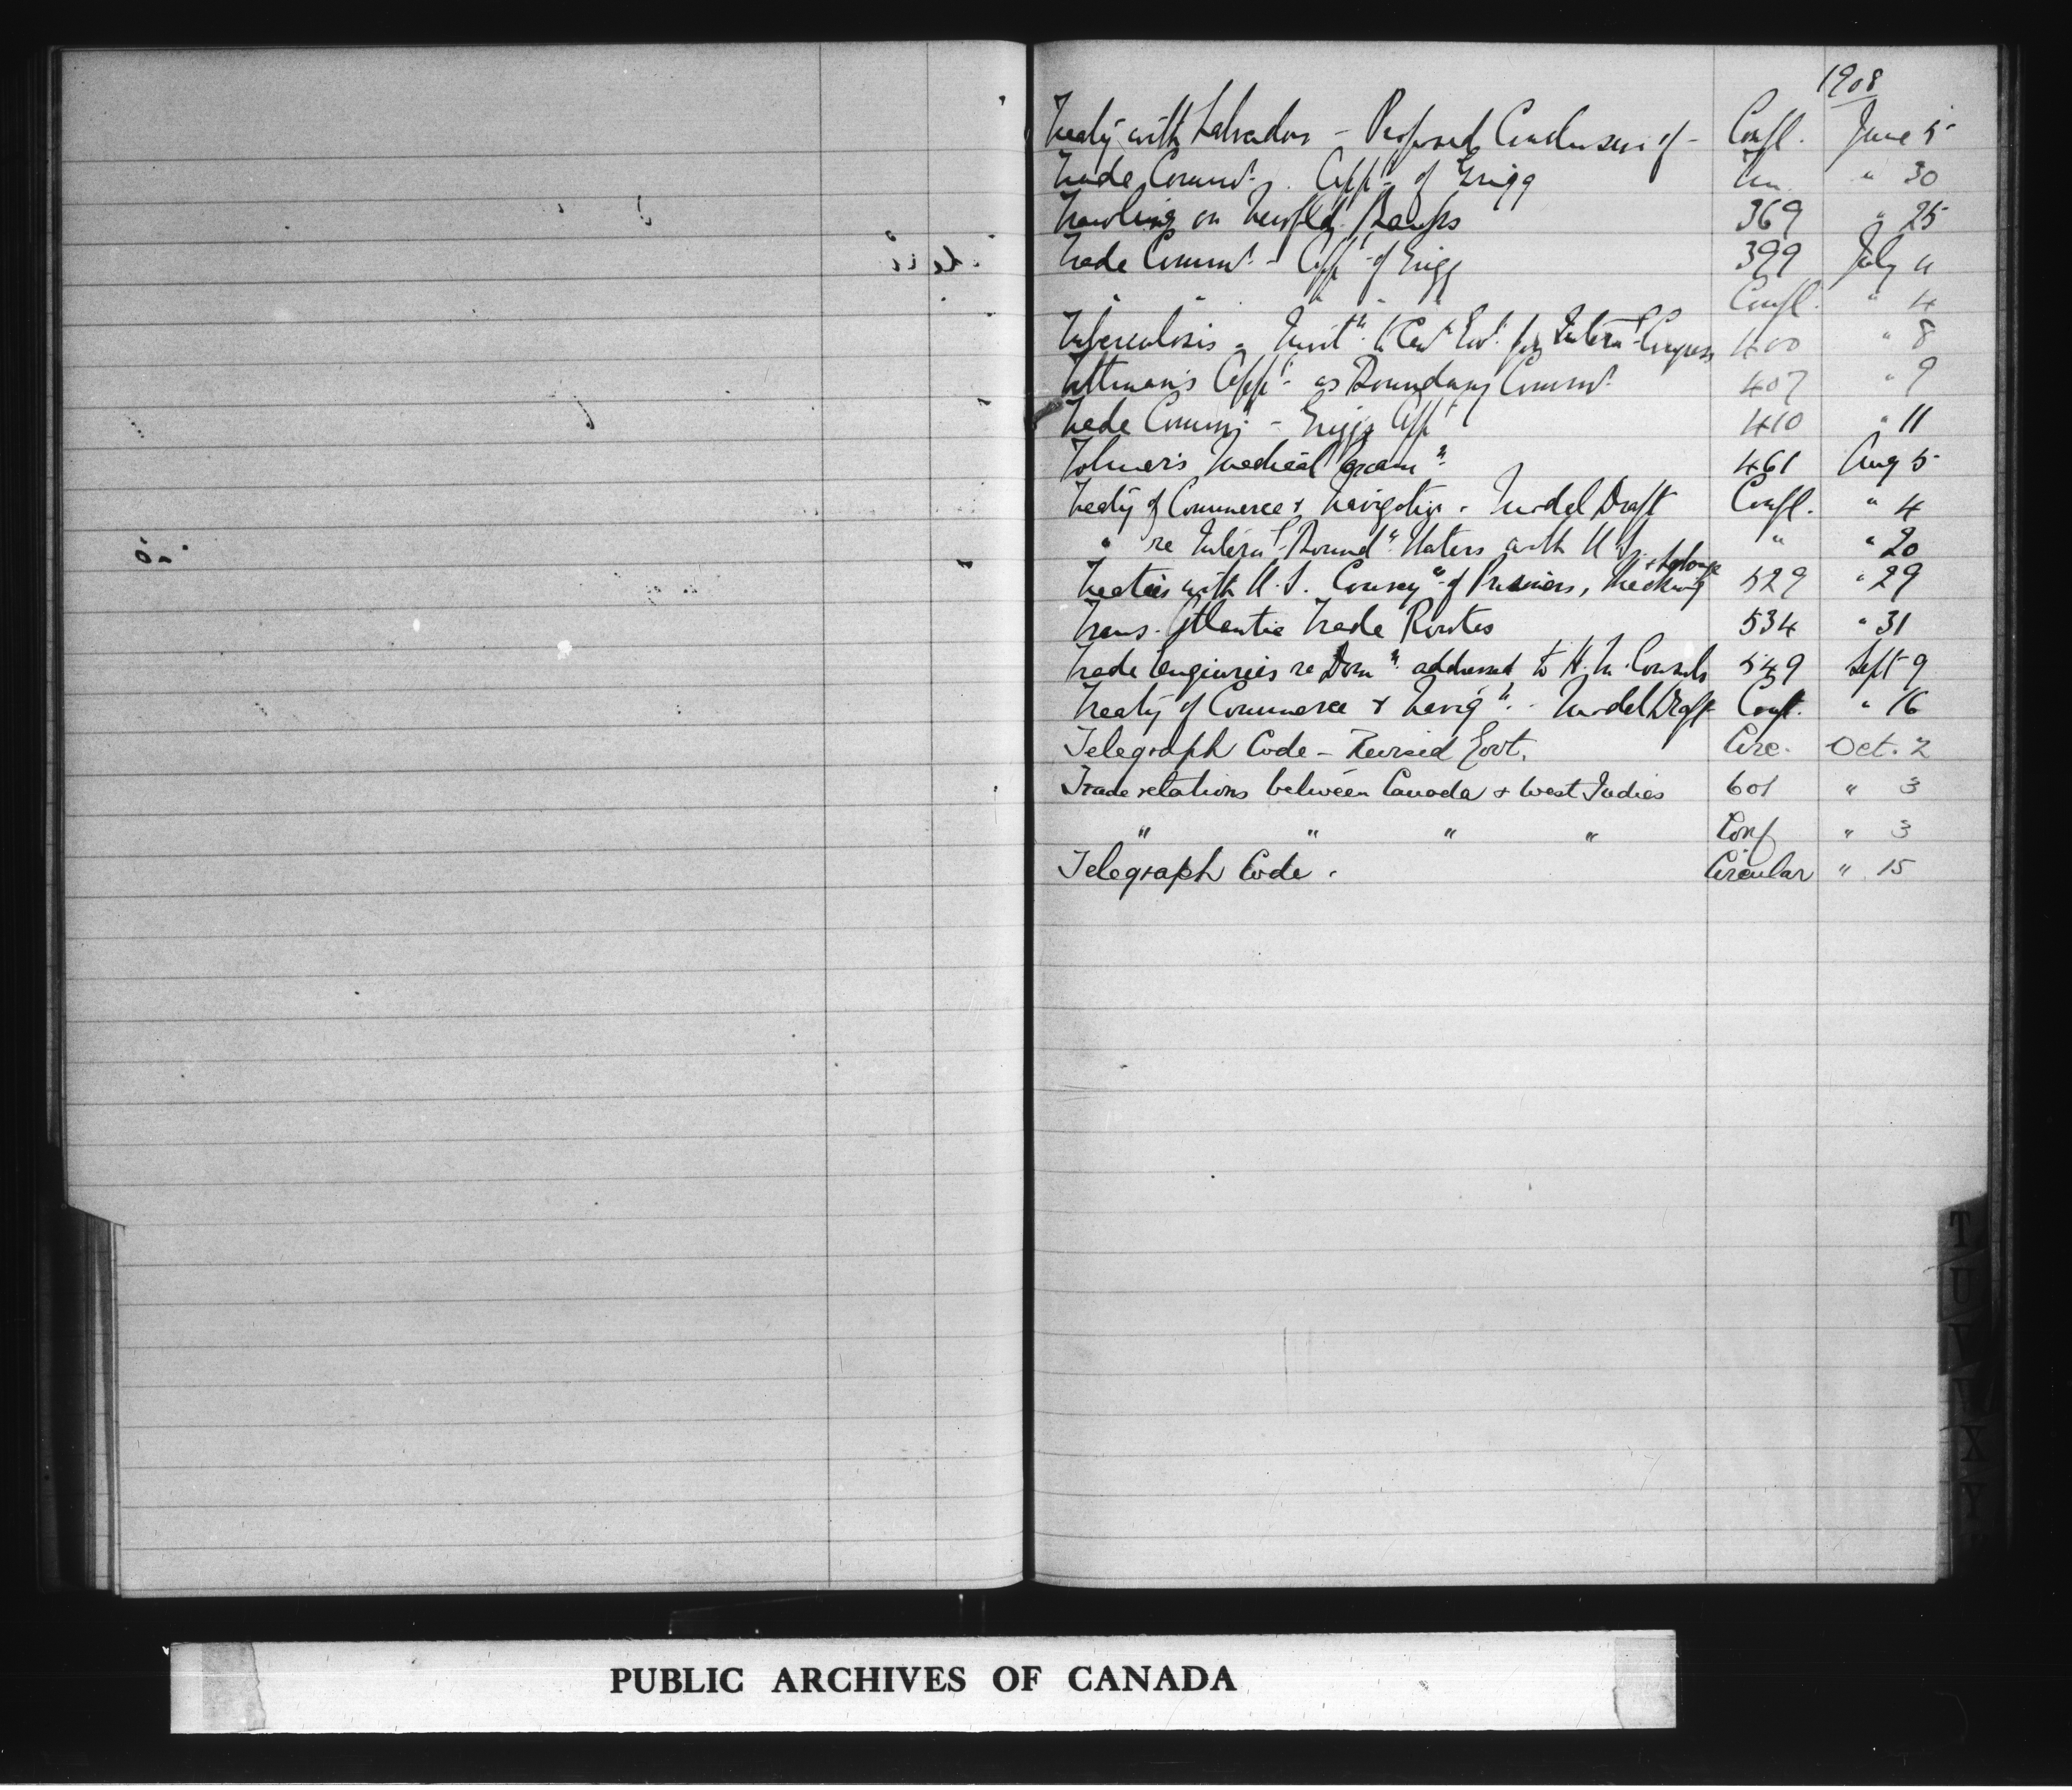 1908
Treaty with Salvador - Proposed Conclusion of - Confl. June 5
Trade Commr. Appt. of Grigg Un. " 30
Trawling on Newfld. Banks 369 " 25
Trade Commr. - Appt. of Grigg 399 July 4
" " " " " Confl. " 4
Tuberculosis - Invitn. to Can Govt. for Internl. Congress 400 " 8
Tittman's Appt. as Boundary Commr. 407 " 9
Trade Commr. - Grigg's Appt 410 " 11
Tolmer's Medical Exam n. 461 Aug 5
Treaty of Commerce & Navigation - Model Draft Confl. " 4
" re Internl. Boundy. Waters with U.S. " " 20
Treaties with U.S. Conveyce of Prisoners, Wrecking & Salvage 529 " 29
Trans-Atlantic Trade Routes 534 " 31
Trade Enquiries re Domn. addressed to H.M. Consuls 549 Sept 9
Treaty of Commerce & Navign. - Model Draft Conf. " 16
Telegraph Code - Revised Govt. Circ. Oct. 2
Trade relations between Canada & West Indies 601 " 3
" " " " Conf " 3
Telegraph Code. Circular " 15
T
U
V
X
Y
PUBLIC ARCHIVES OF CANADA